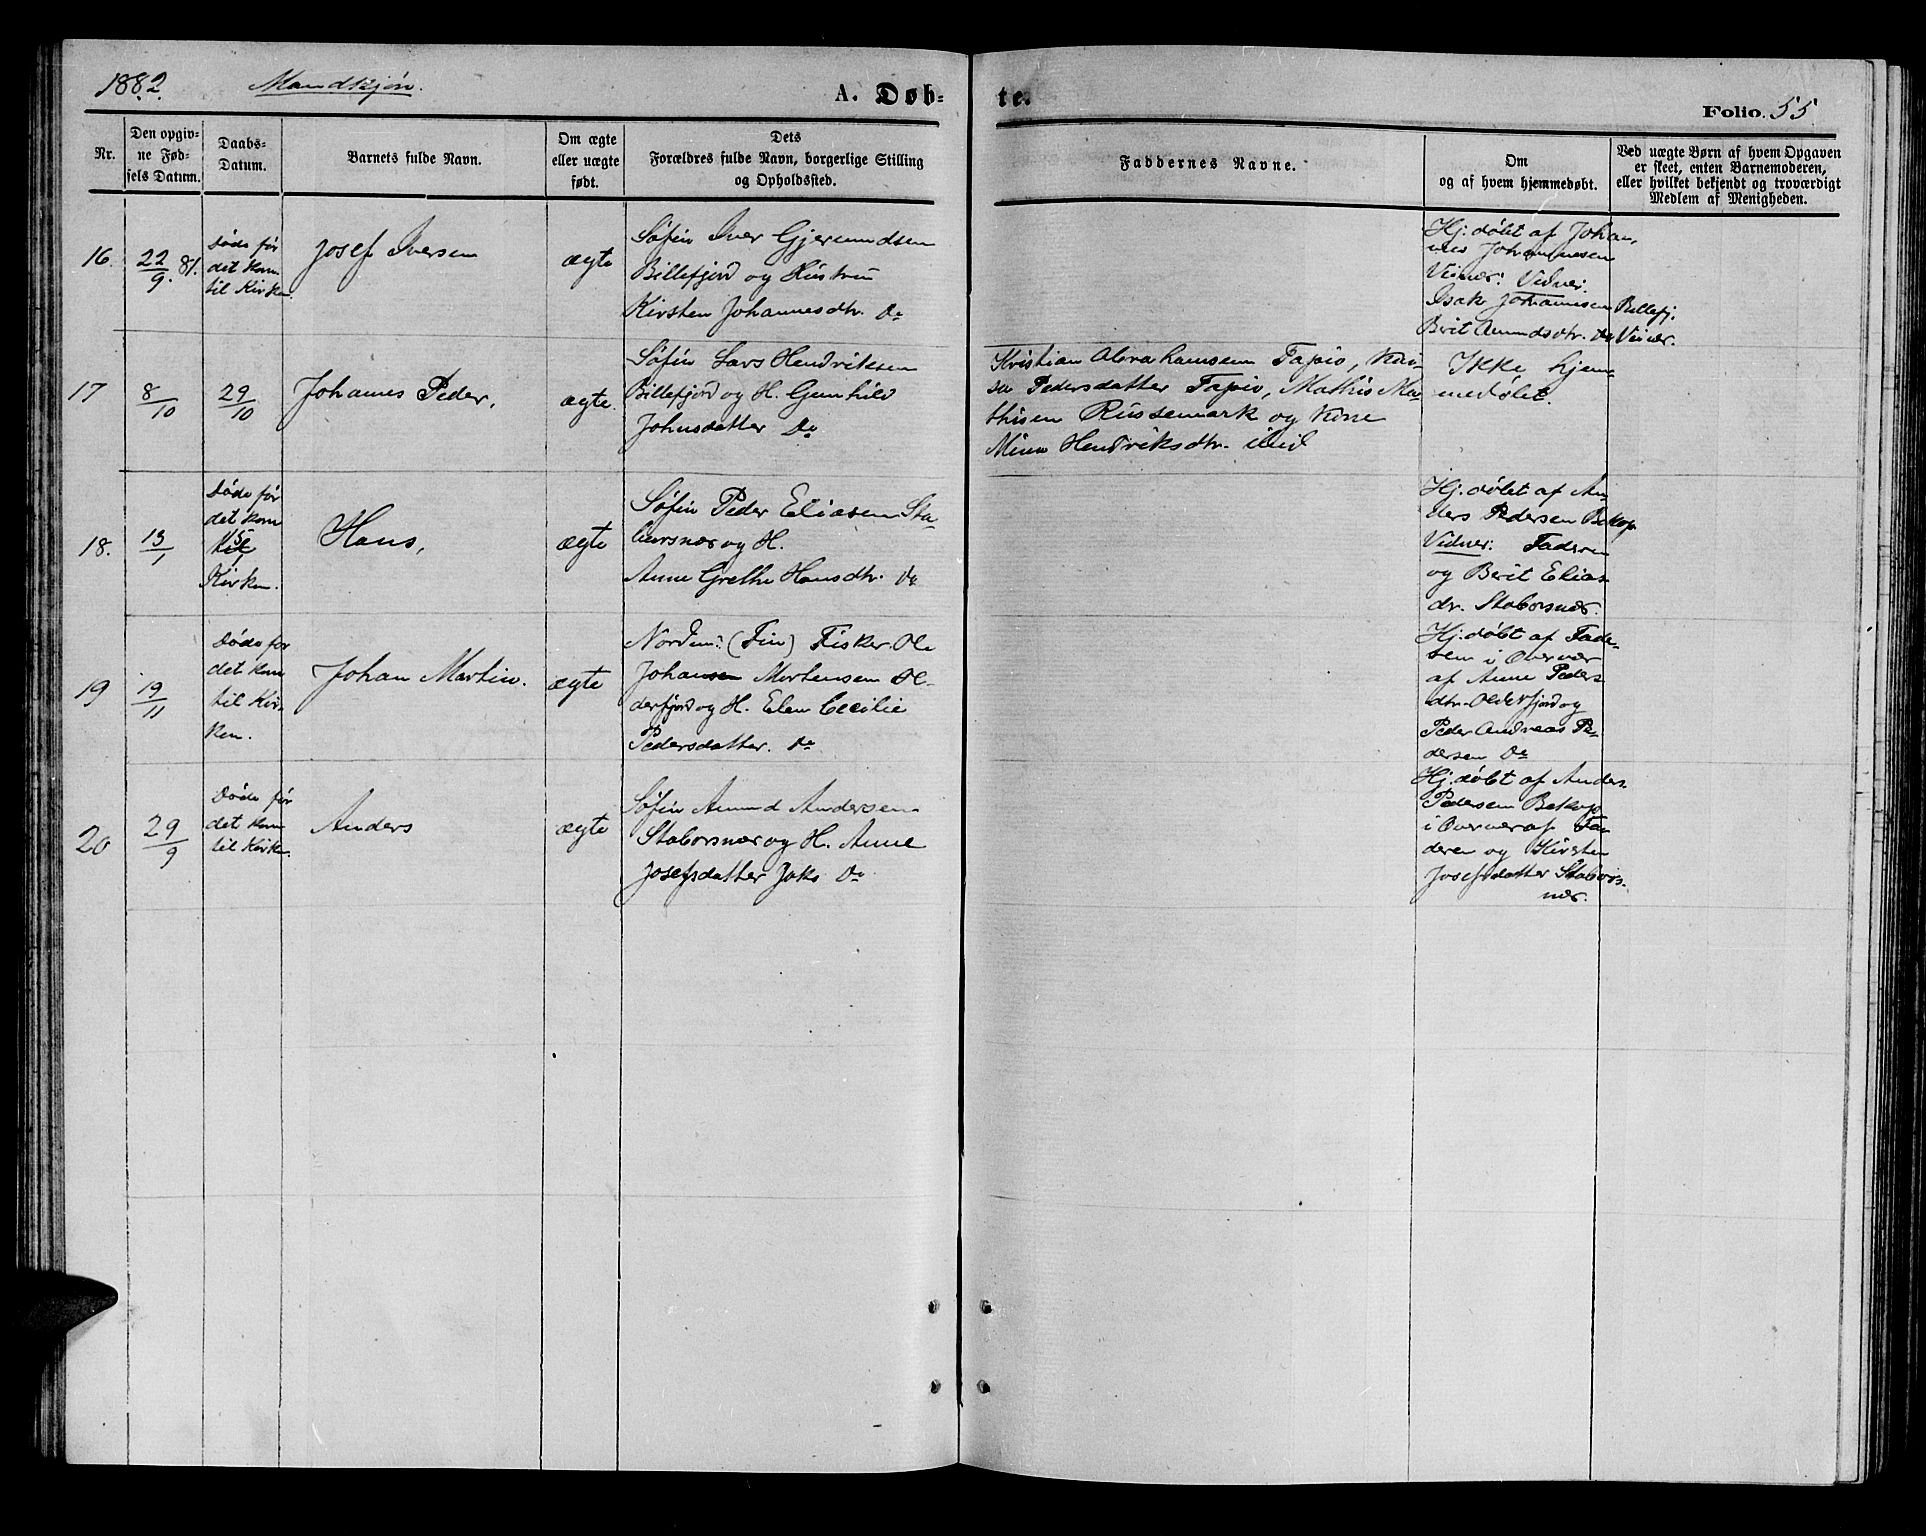 1882. Mandkjøn. A. Døb- te. Folio. 55
Nr.
Den opgiv-
ne Fød-
sels Datum.
Daabs-
Datum.
Barnets fulde Navn.
Om ægte
eller uægte
født.
Dets
Forældres fulde Navn, borgerlige Stilling
og Opholdssted.
Faddernes Navne.
Om
og af hvem hjemmedøbt.
Ved uægte Børn af hvem Opgaven
er skeet, enten Barnemoderen,
eller hvilket bekjendt og troværdigt
Medlem af Menigheden.
16.
22/9. 81.
Døde før
det kom
til Kirken.
Josef Iversen
ægte
Søfin Iver Gjermundsen
Billefjord og Hustru
Kirsten Johannesdtr. Do
Hj. døbt af Johan,
nes Johannesen
Veinær: Vidner:
Isak Johannesen Billefj.
Berit Amundsdtr. Do Veinær.
17
8/10
29/10
Johannes Peder,
ægte.
Søfin Lars Hendriksen
Billefjord og H. Gunhild
Johnsdatter Do
Kristian Abrahamsen Tapio, Kai-
sa Pedersdatter Tapio, Mathis Ma-
thisen Russemark og Kone
Hendriksdtr. ibid
Ikke hjem-
medøbt.
18.
13/1
Døde før
det kom
til
Kirken.
Hans,
ægte
Søfin Peder Eliasen Sta-
bursnær og H.
Anne Grethe Hansdtr. Do
Hj. døbt af An-
ders Pedersen Bekop
Vidner: Faderen
og Berit Elias-
dr. Staborsnær.
19
19/11
Døde før
det kom
til Kir-
ken.
Johan Martin.
ægte
Nordm: (Fin) Fisker Ole
Johansen Mortensen Ol-
derfjord og H. Elen Cecilie
Pedersdatter. Do
Hj. døbt af Fade-
ren i Overvær
af Anne Peders
dtr. Olderfjord og
Peder Andreas Pe-
dersen Do
20
29/9
Døde før
det kom
til Kirken.
Anders
ægte
Søfin Amund Andersen
Staborsnær og H. Anne
Josefsdatter Joks Do
Hj. døbt af Anders
Pedersen Bekop
i Overvær af Fa-
deren og Kirsten
Josefsdatter Stabors-
nær.